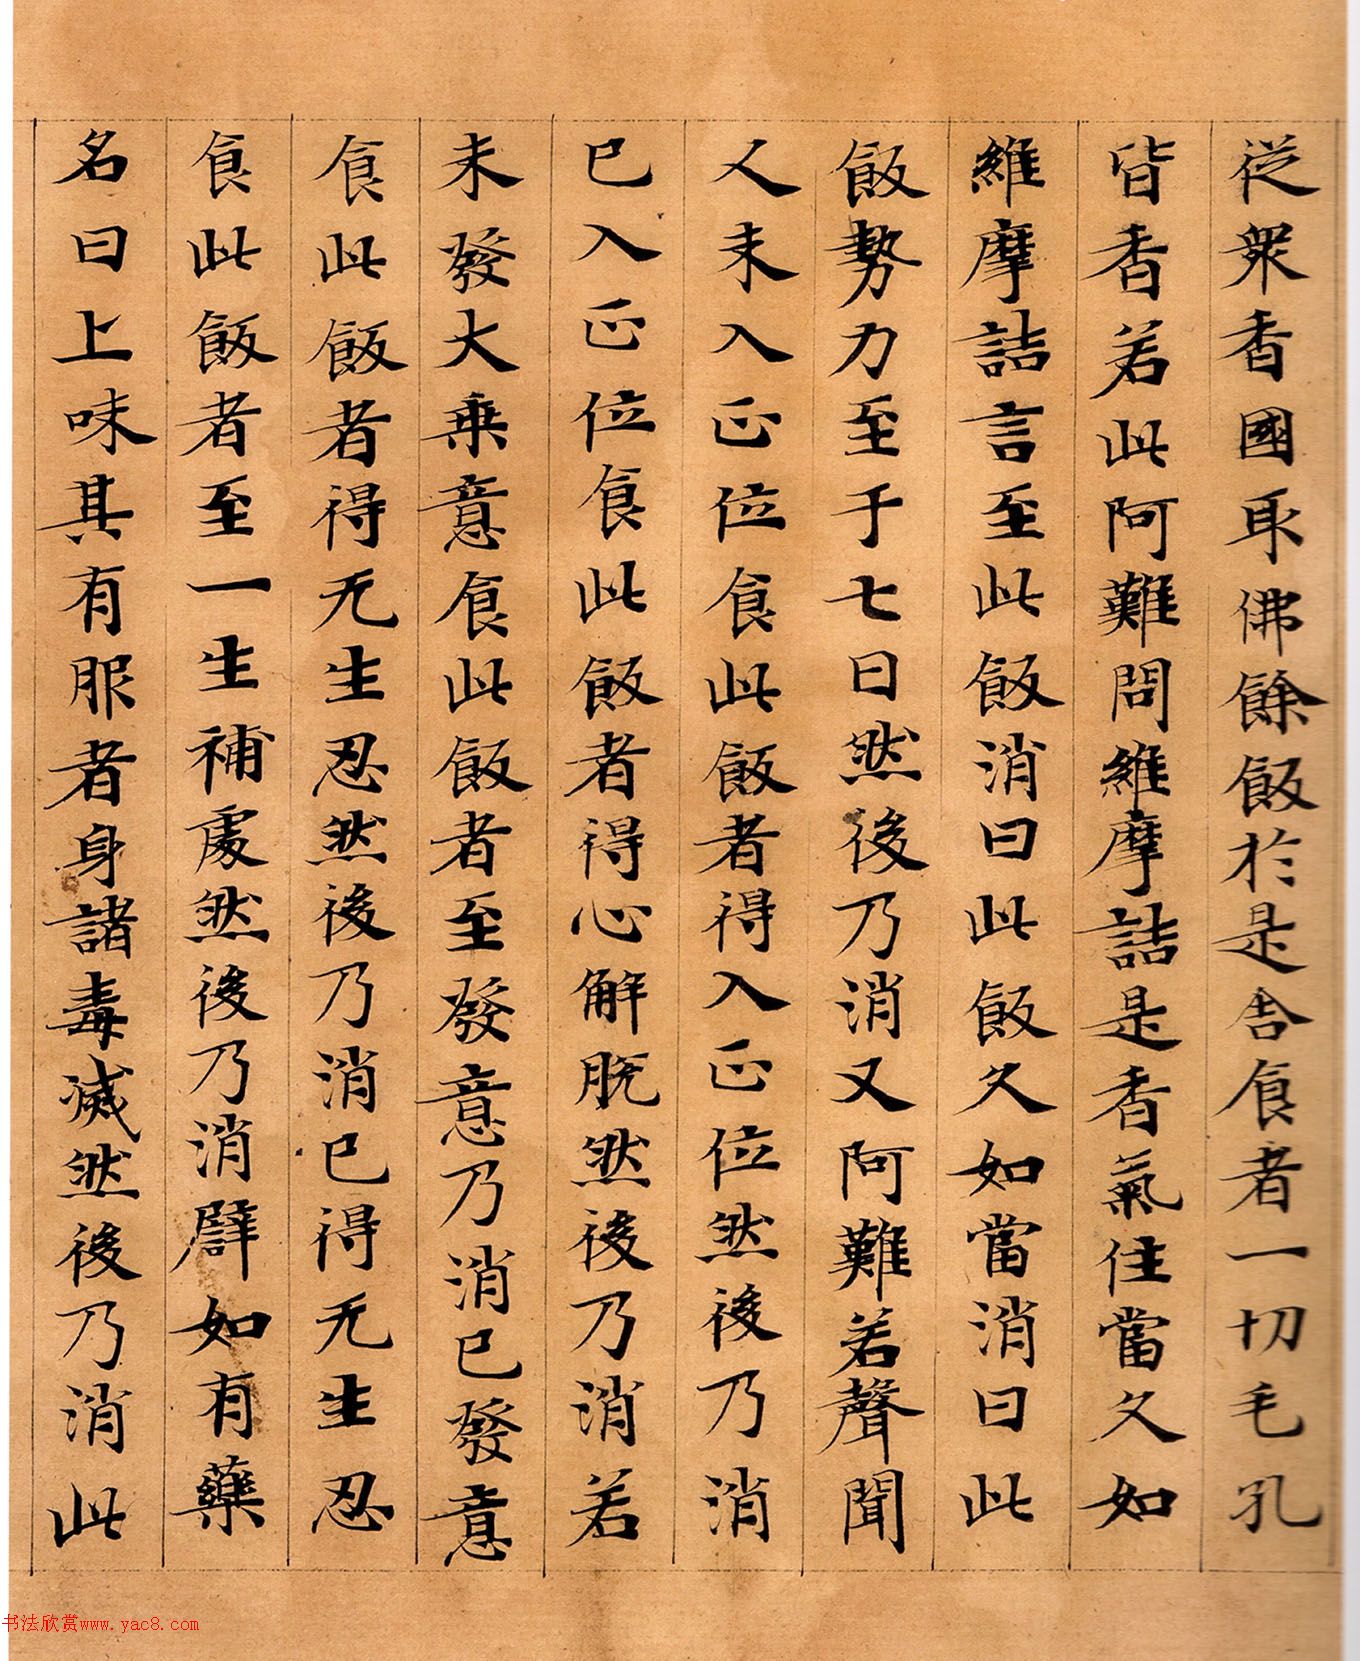 從衆香國取佛餘飯於是舎食者一切毛孔
皆香若此阿難問維摩詰是香氣住當久如
維摩詰言至此飯消曰此飯久如當消曰此
飯勢力至于七日然後乃消又阿難若聲聞
人未入正位食此飯者得入正位然後乃消
已入正位食此飯者得心解脫然後乃消若
未發大乗意食此飯者至發意乃消已發意
食此飯者得无生忍然後乃消已得无生忍
食此飯者至一生補處然後乃消譬如有藥
名曰上味其有服者身諸毒滅然後乃消此
书法欣赏www.yac8.com